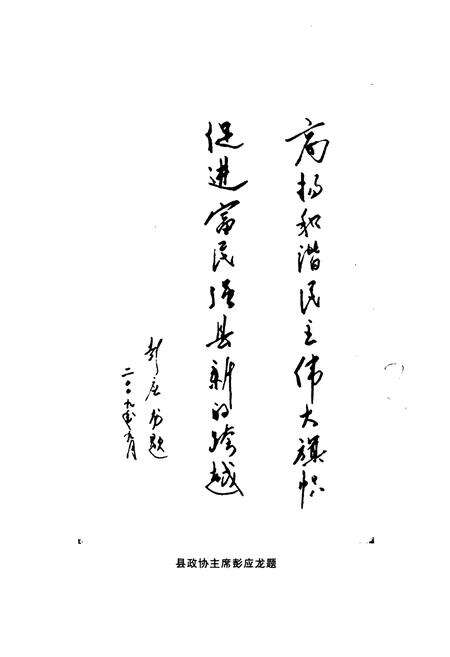 高扬和谐民主伟大旗帜
促进富民强县新的跨越
彭应龙题
二〇〇九年九月
县政协主席彭应龙题